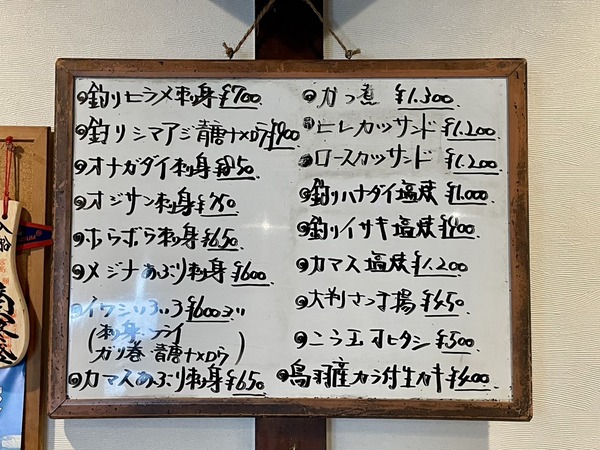 釣りヒラメ刺身 ¥700.
釣りシマアジ青唐ナメロウ ¥900
オナガダイ刺身 ¥850.
オジサン刺身 ¥750
ホウボウ刺身 ¥650.
メジナあぶり刺身 ¥600
イワシいろいろ ¥600コリ
(刺身・フライ
ガリ巻・青唐ナメロウ)
カマスあぶり刺身 ¥650
カツ煮 ¥1.300.
ヒレカツサンド ¥1.200.
ロースカツサンド ¥1.200.
釣りハナダイ塩焼 ¥1.000
釣りイサキ塩焼 ¥900
カマス塩焼 ¥1.200
大判さつま揚 ¥450.
こう玉オヒタシ ¥500.
鳥羽産カラ付生カキ ¥400.